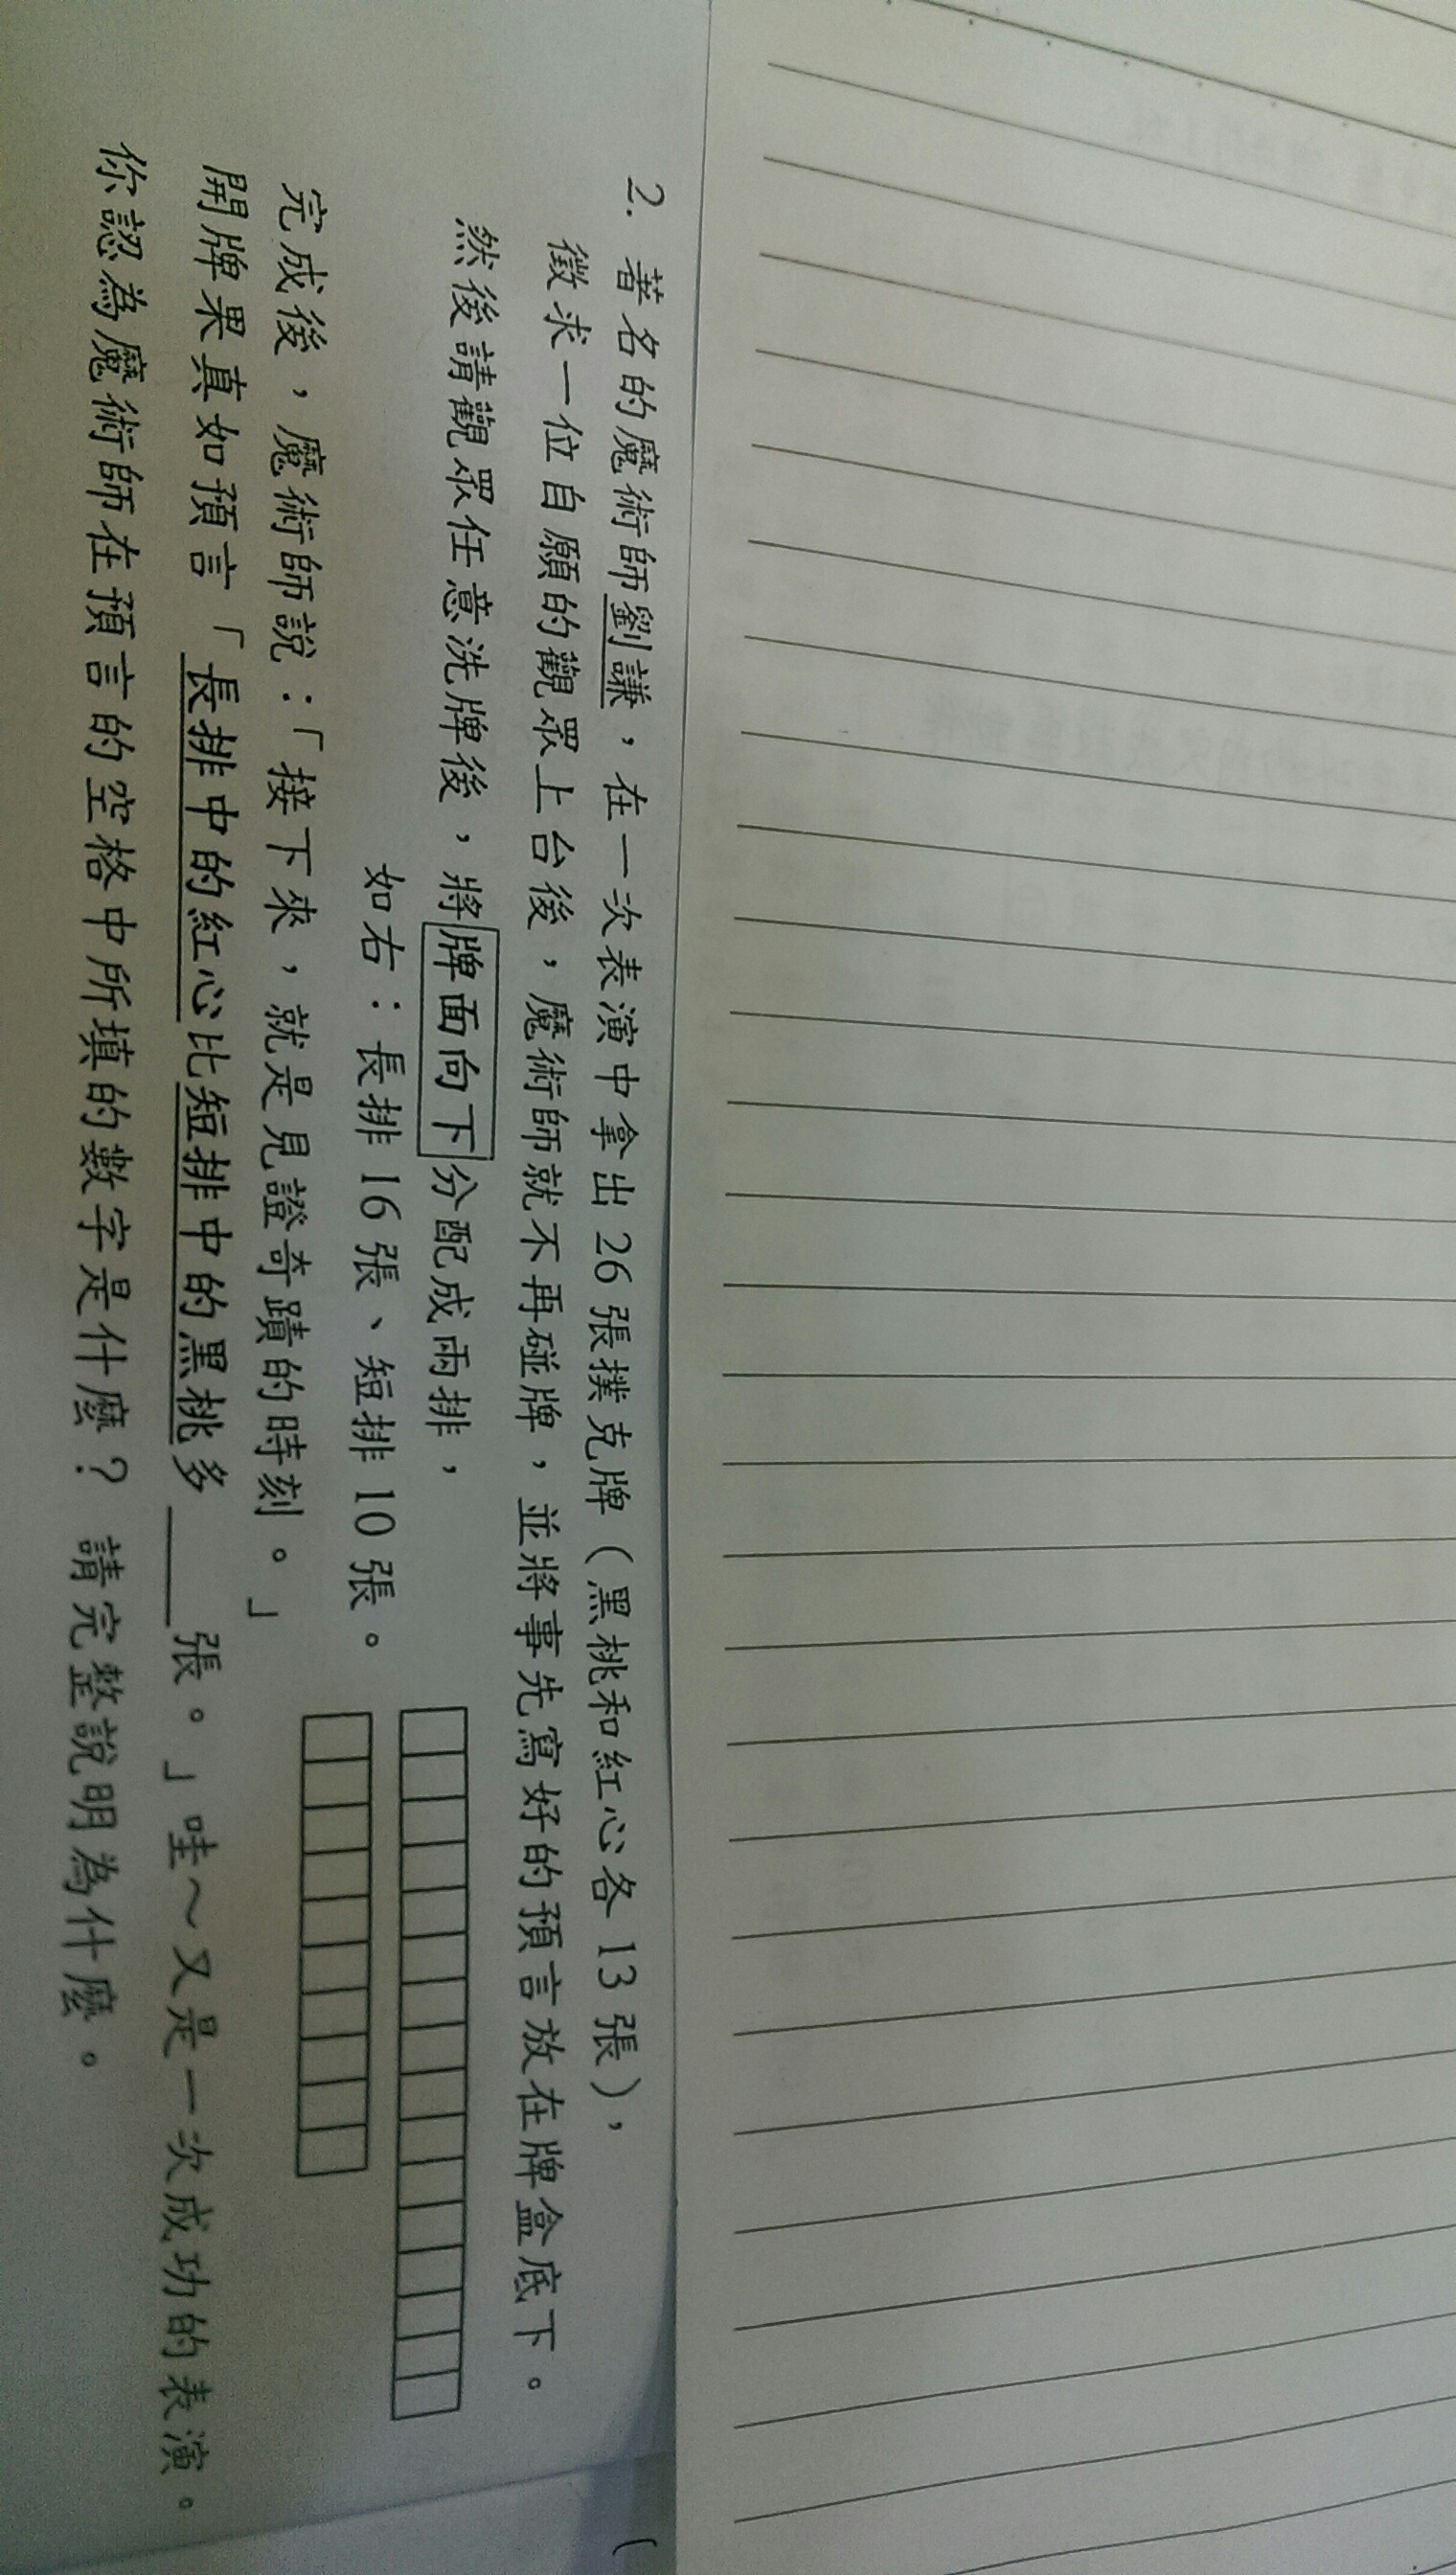 2. 著名的魔術師劉謙，在一次表演中拿出26張撲克牌（黑桃和紅心各13張），
徵求一位自願的觀眾上台後，魔術師就不再碰牌，並將事先寫好的預言放在牌盒底下。
然後請觀眾任意洗牌後，將牌面向下分配成兩排，
如右：長排16張、短排10張。
完成後，魔術師說：「接下來，就是見證奇蹟的時刻。」
開牌果真如預言「長排中的紅心比短排中的黑桃多____張。」哇～又是一次成功的表演。
你認為魔術師在預言的空格中所填的數字是什麼？請完整說明為什麼。